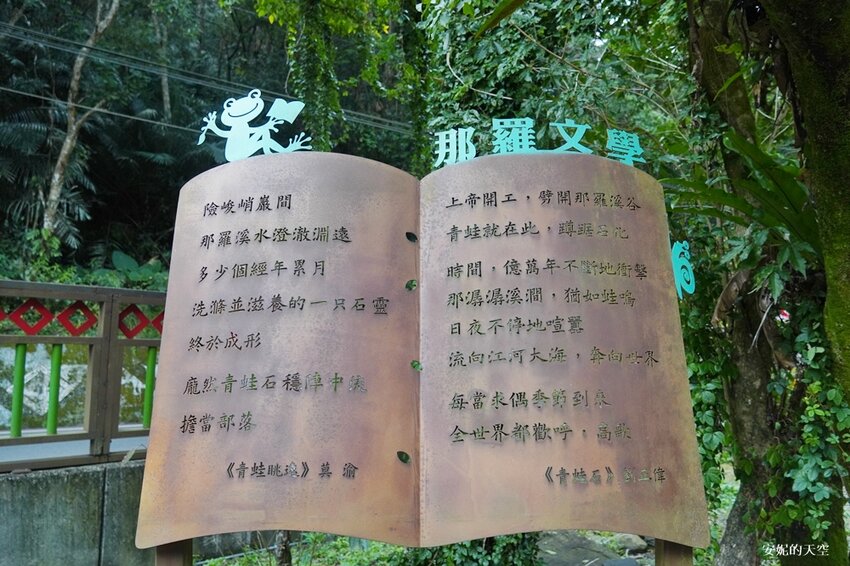 那羅文學
險峻峭巖間
那羅溪水澄澈淵遠
多少個經年累月
洗滌並滋養的一只石靈
終於成形
龐然青蛙石穩陣中流
擔當部落
《青蛙眺遠》莫 渝
上帝開工,劈開那羅溪谷
青蛙就在此,蹲踞石化
時間,億萬年不斷地衝擊
那潺潺溪澗,猶如蛙鳴
日夜不停地喧囂
流向江河大海,奔向世界
每當求偶季節到來
全世界都歡呼,高歌
《青蛙石》劉正偉
安妮的天空